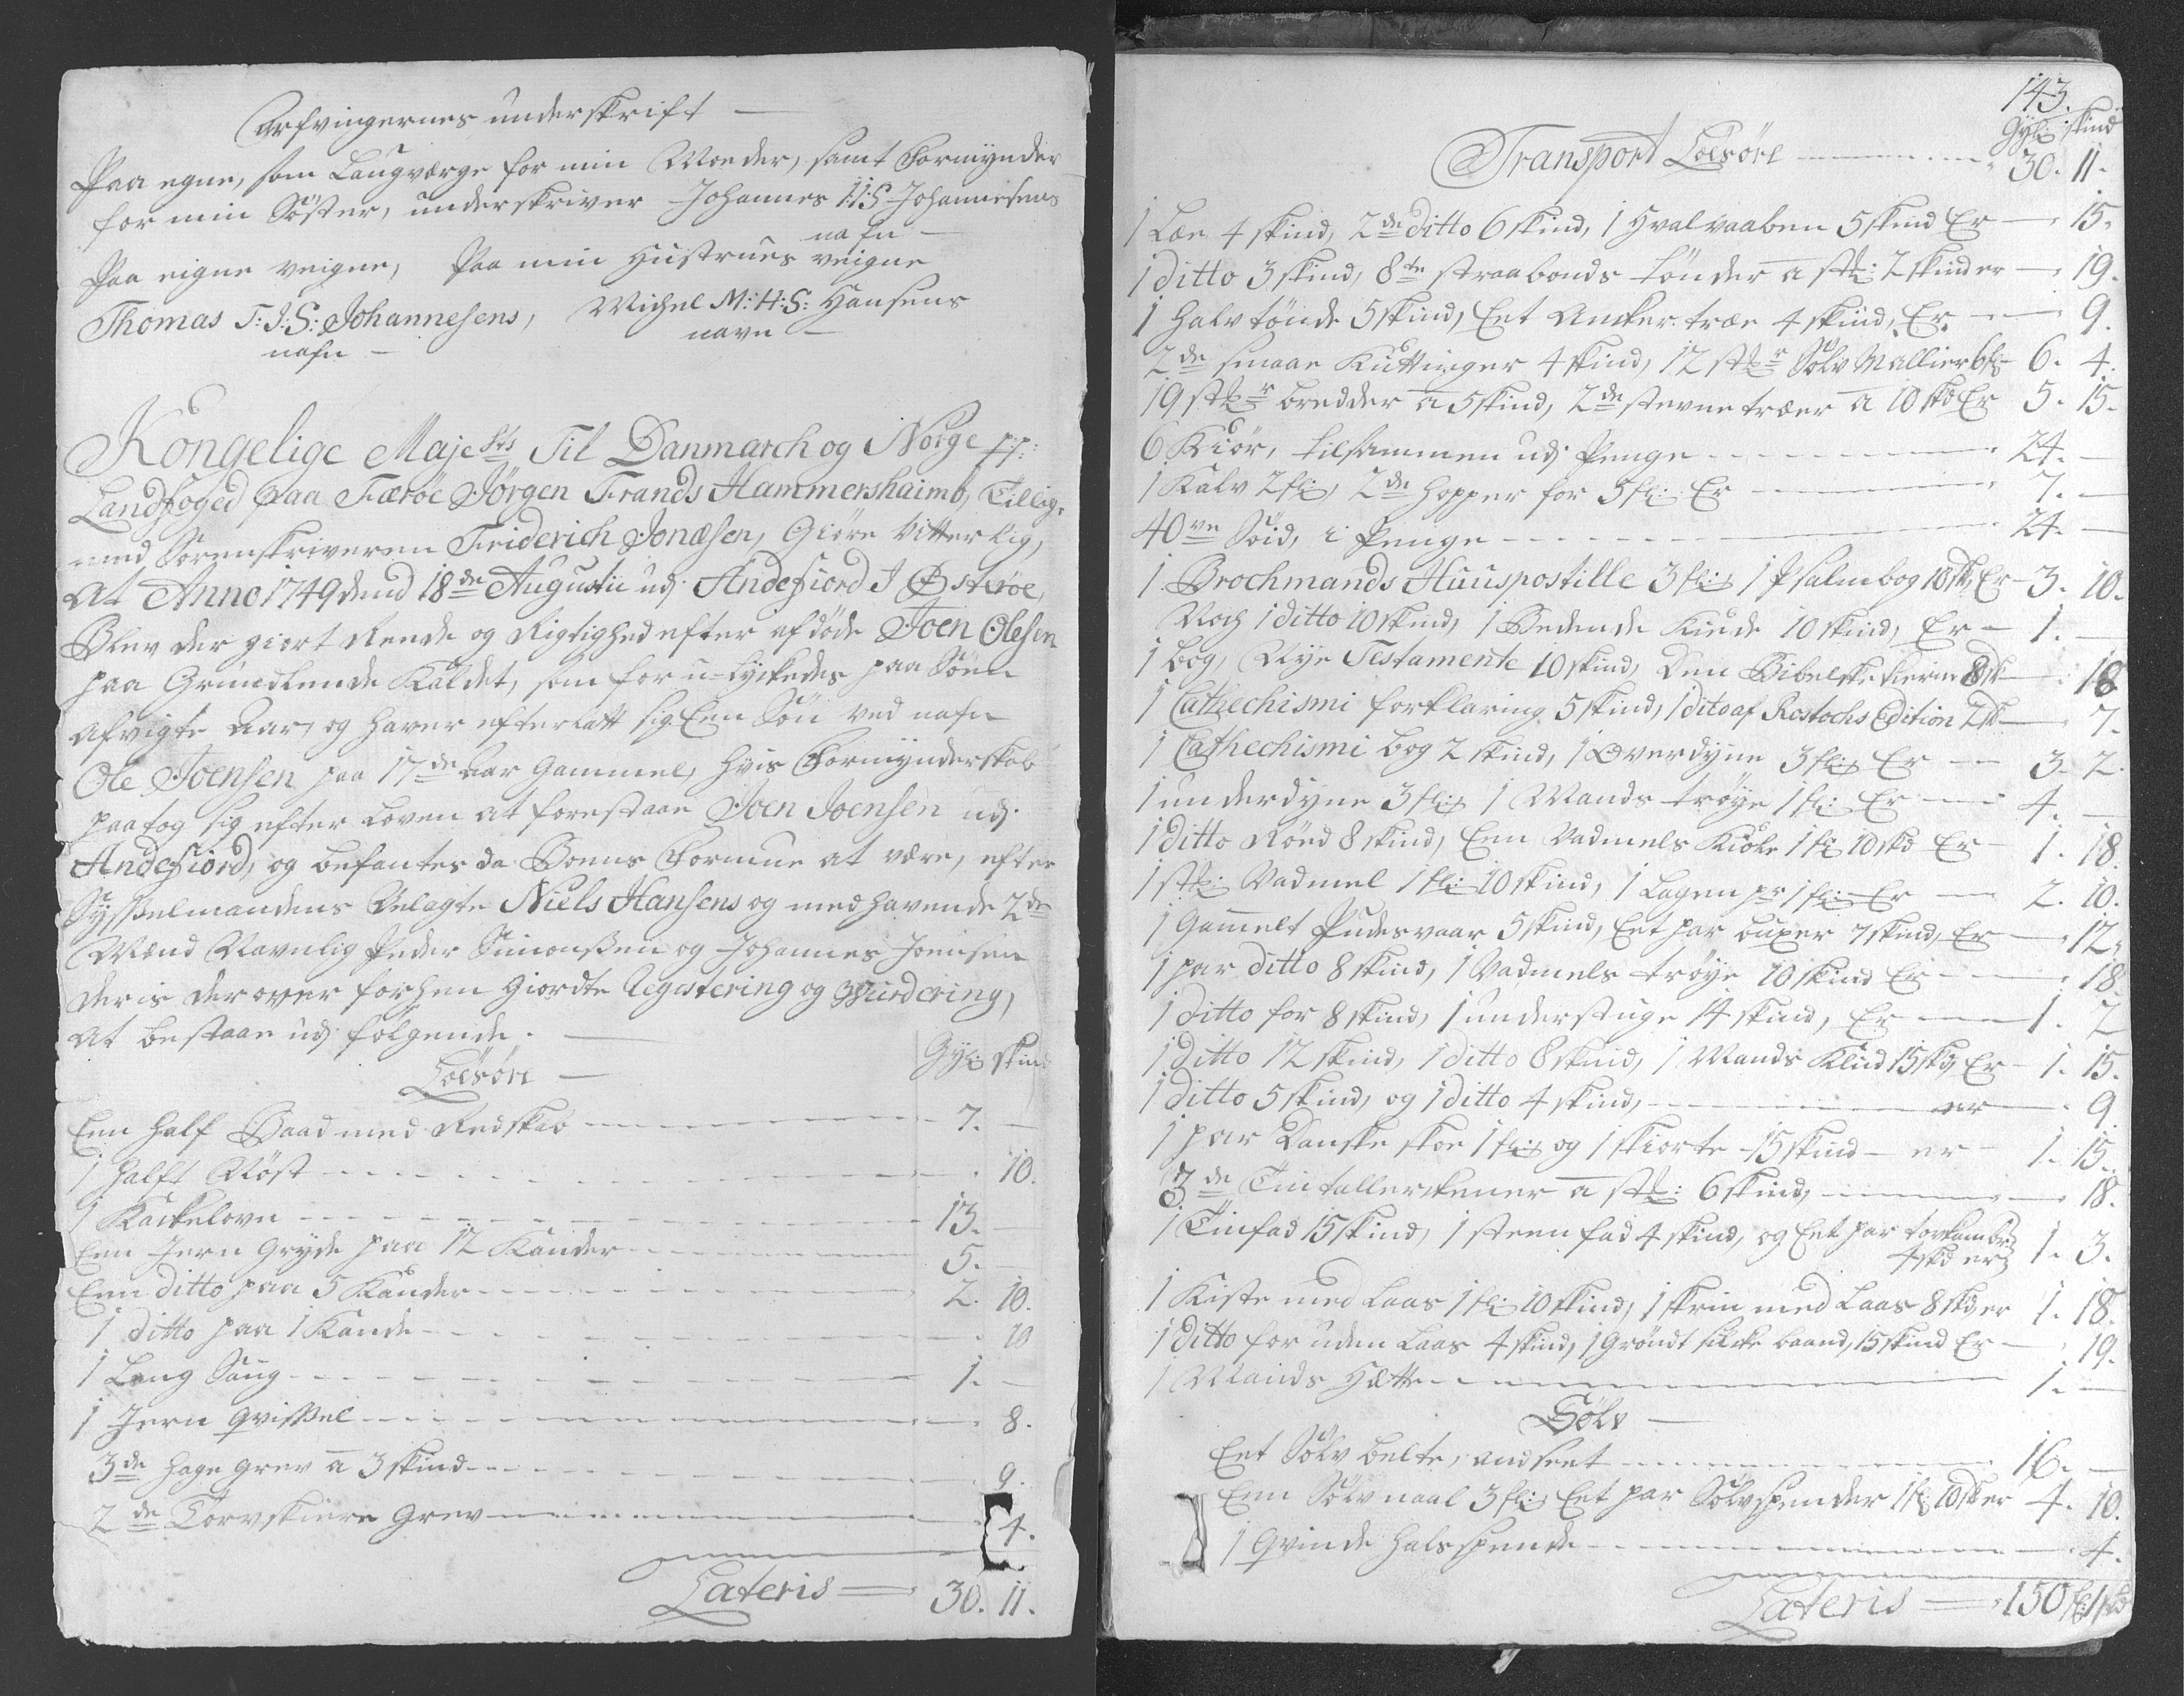 Arfvingernes underskrift —
Paa egne, som Laugværge for min Moeder, samt Formynder
for min Söster, underskriver Johannes I:I:S Johannesens
nafn —
Paa eigne veigne, Paa min Hustrues veigne
Thomas T:J:S: Johannesens, Michel M:H:S: Hansens
nafn — navn —
Kongelige Majests Til Danmarch og Norge pp:
Landfoged paa Færöe Jörgen Frands Hammershaimb, Tillige
med Sorenskriveren Friderich Jonæsen, Giöre Vitterlig,
At Anno 1749 dend 18de Augustii udj Andefiord I Österöe,
Blev der giort Rende og Rigtighed efter afdöde Joen Olesen
paa Grundlende Kaldet, som for u-lyckedes paa Söen
afvigte Aar, og haver efterlatt sig Een Sön ved nafn
Ole Joensen paa 17de Aar Gammel, hvis Formynderskab
paatog sig efter Loven at forestaae Joen Joensen udj
Andefiord, og befantes da Boens Formue at være, efter
Sysselmandens Velagte Niels Hansens og medhavende 2de
Mænd Navnlig Peder Simonssen og Johannes Joensen
deris derover forhen giordte Registering og Wurdering,
At bestaae udj fölgende. —
Löesöre — Gyl: skind
Een half Baad med Redskab 7. —
1 halft Nöst 10.
1 Kackelovn 13. —
Een Jern Gryde paa 12 Kander 5. —
Een ditto paa 5 Kander 2. 10.
1 ditto paa 1 Kande 10
1 Lang Saug 1. —
1 Jern qvissel 8.
3de hage grev a 3 skind 9.
2de Torvskiere Grev 4.
Lateris — 30. 11.
143.
Gyl: skind
Transport Löesöre 30. 11.
1 Læe 4 skind, 2de ditto 6 skind, 1 Hvalvaaben 5 skind Er 15.
1 ditto 3 skind, 8te straabonds tönder a stk: 2 skind er 19.
1 halv tönde 5 skind, Eet Ancker træe 4 skind, Er 9.
2de smaae Kuttinger 4 skind, 12 stkr Sölv Mallier 6 fl: 6. 4.
19 stkr bredder a 5 skind, 2de stevne træer a 10 skd Er 5. 15.
6 Kiör, tilsammen udj Penge 24. —
1 Kalv 2 fl:, 2de Hopper for 5 fl: Er 7. —
40ve Söid, i Penge 24. —
1 Brochmands Huuspostille 3 fl: 1 Psalmebog 10 sk, Er 3. 10.
Noch 1 ditto 10 skind, 1 Bedende Kiede 10 skind, Er 1. —
1 bog, Nye Testamente 10 skind, Den Bibelske Kierne 8 sk 18
1 Cathechismi forklaring 5 skind, 1 dito af Rostochs Edition 2 sk 7.
1 Cathechismi bog 2 skind, 1 Overdyne 3 fl: Er 3. 2.
1 underdyne 3 fl: 1 Mands tröye 1 fl: Er 4. —
1 ditto Röed 8 skind, Een Vadmels Kiole 1 fl: 10 skd Er 1. 18.
1 stk: Vadmel 1 fl: 10 skind, 1 Lagen pr 1 fl: Er 2. 10.
1 Gammelt Pudesvaar 5 skind, Eet par buxer 7 skind, Er 12.
1 par ditto 8 skind, 1 Vadmels tröye 10 skind Er 18.
1 ditto for 8 skind, 1 understuge 14 skind, Er 1. 2
1 ditto 12 skind, 1 ditto 8 skind, 1 Mands Klud 15 skd, Er 1. 15.
1 ditto 5 skind, og 1 ditto 4 skind, er 9
1 par Danske skoe 1 fl: og 1 skiorte 15 skind er 1. 15.
3de Tintallerckener a stk: 6 skind, 18.
1 Tinfad 15 skind, 1 steen fad 4 skind, og Eet par
4 skd er 1. 3.
1 Kiste med Laas 1 fl: 10 skind, 1 skrin med Laas 8 skd er 1. 18.
1 ditto for uden Laas 4 skind, 1 Gröndt silcke baand, 15 skind Er 19.
1 Mands Hætte 1. —
Sölv —
Eet Sölv belte, andseet 16. —
Een Sölv naal 3 fl:, Eet par Sölvspender 1 fl: 10 sk er 4. 10.
1 qvinde halsspende 4.
Lateris — 150 fl: 1 skd